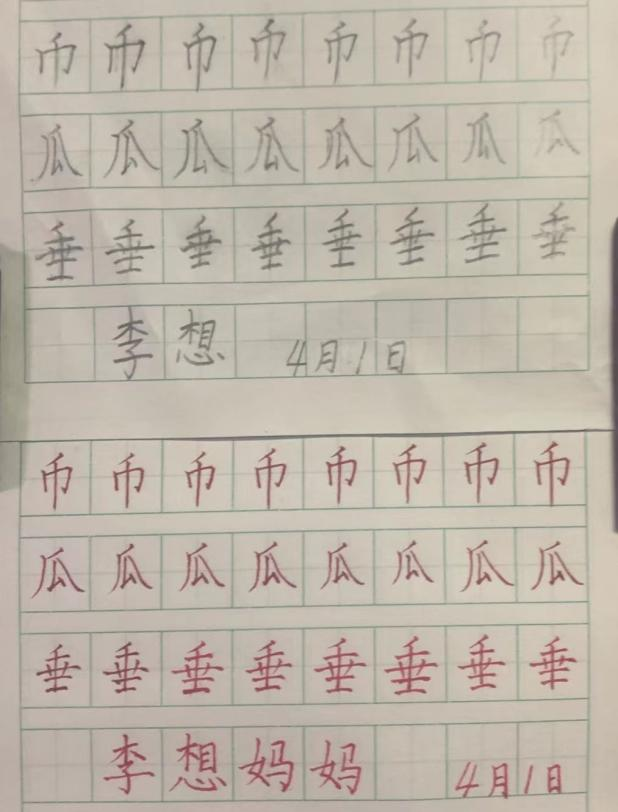 币币币币币币币币
瓜瓜瓜瓜瓜瓜瓜瓜
垂垂垂垂垂垂垂垂
李想 4月1日
币币币币币币币币
瓜瓜瓜瓜瓜瓜瓜瓜
垂垂垂垂垂垂垂垂
李想妈妈 4月1日